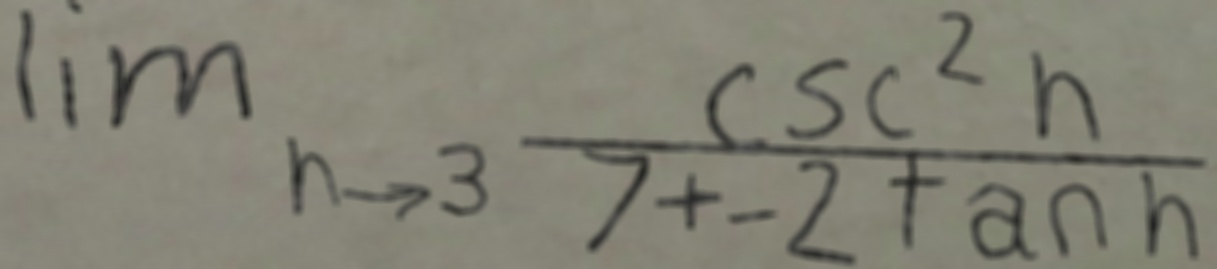 \lim_{n \to 3} \frac{\csc^2 n}{7 + -2 \tan n}